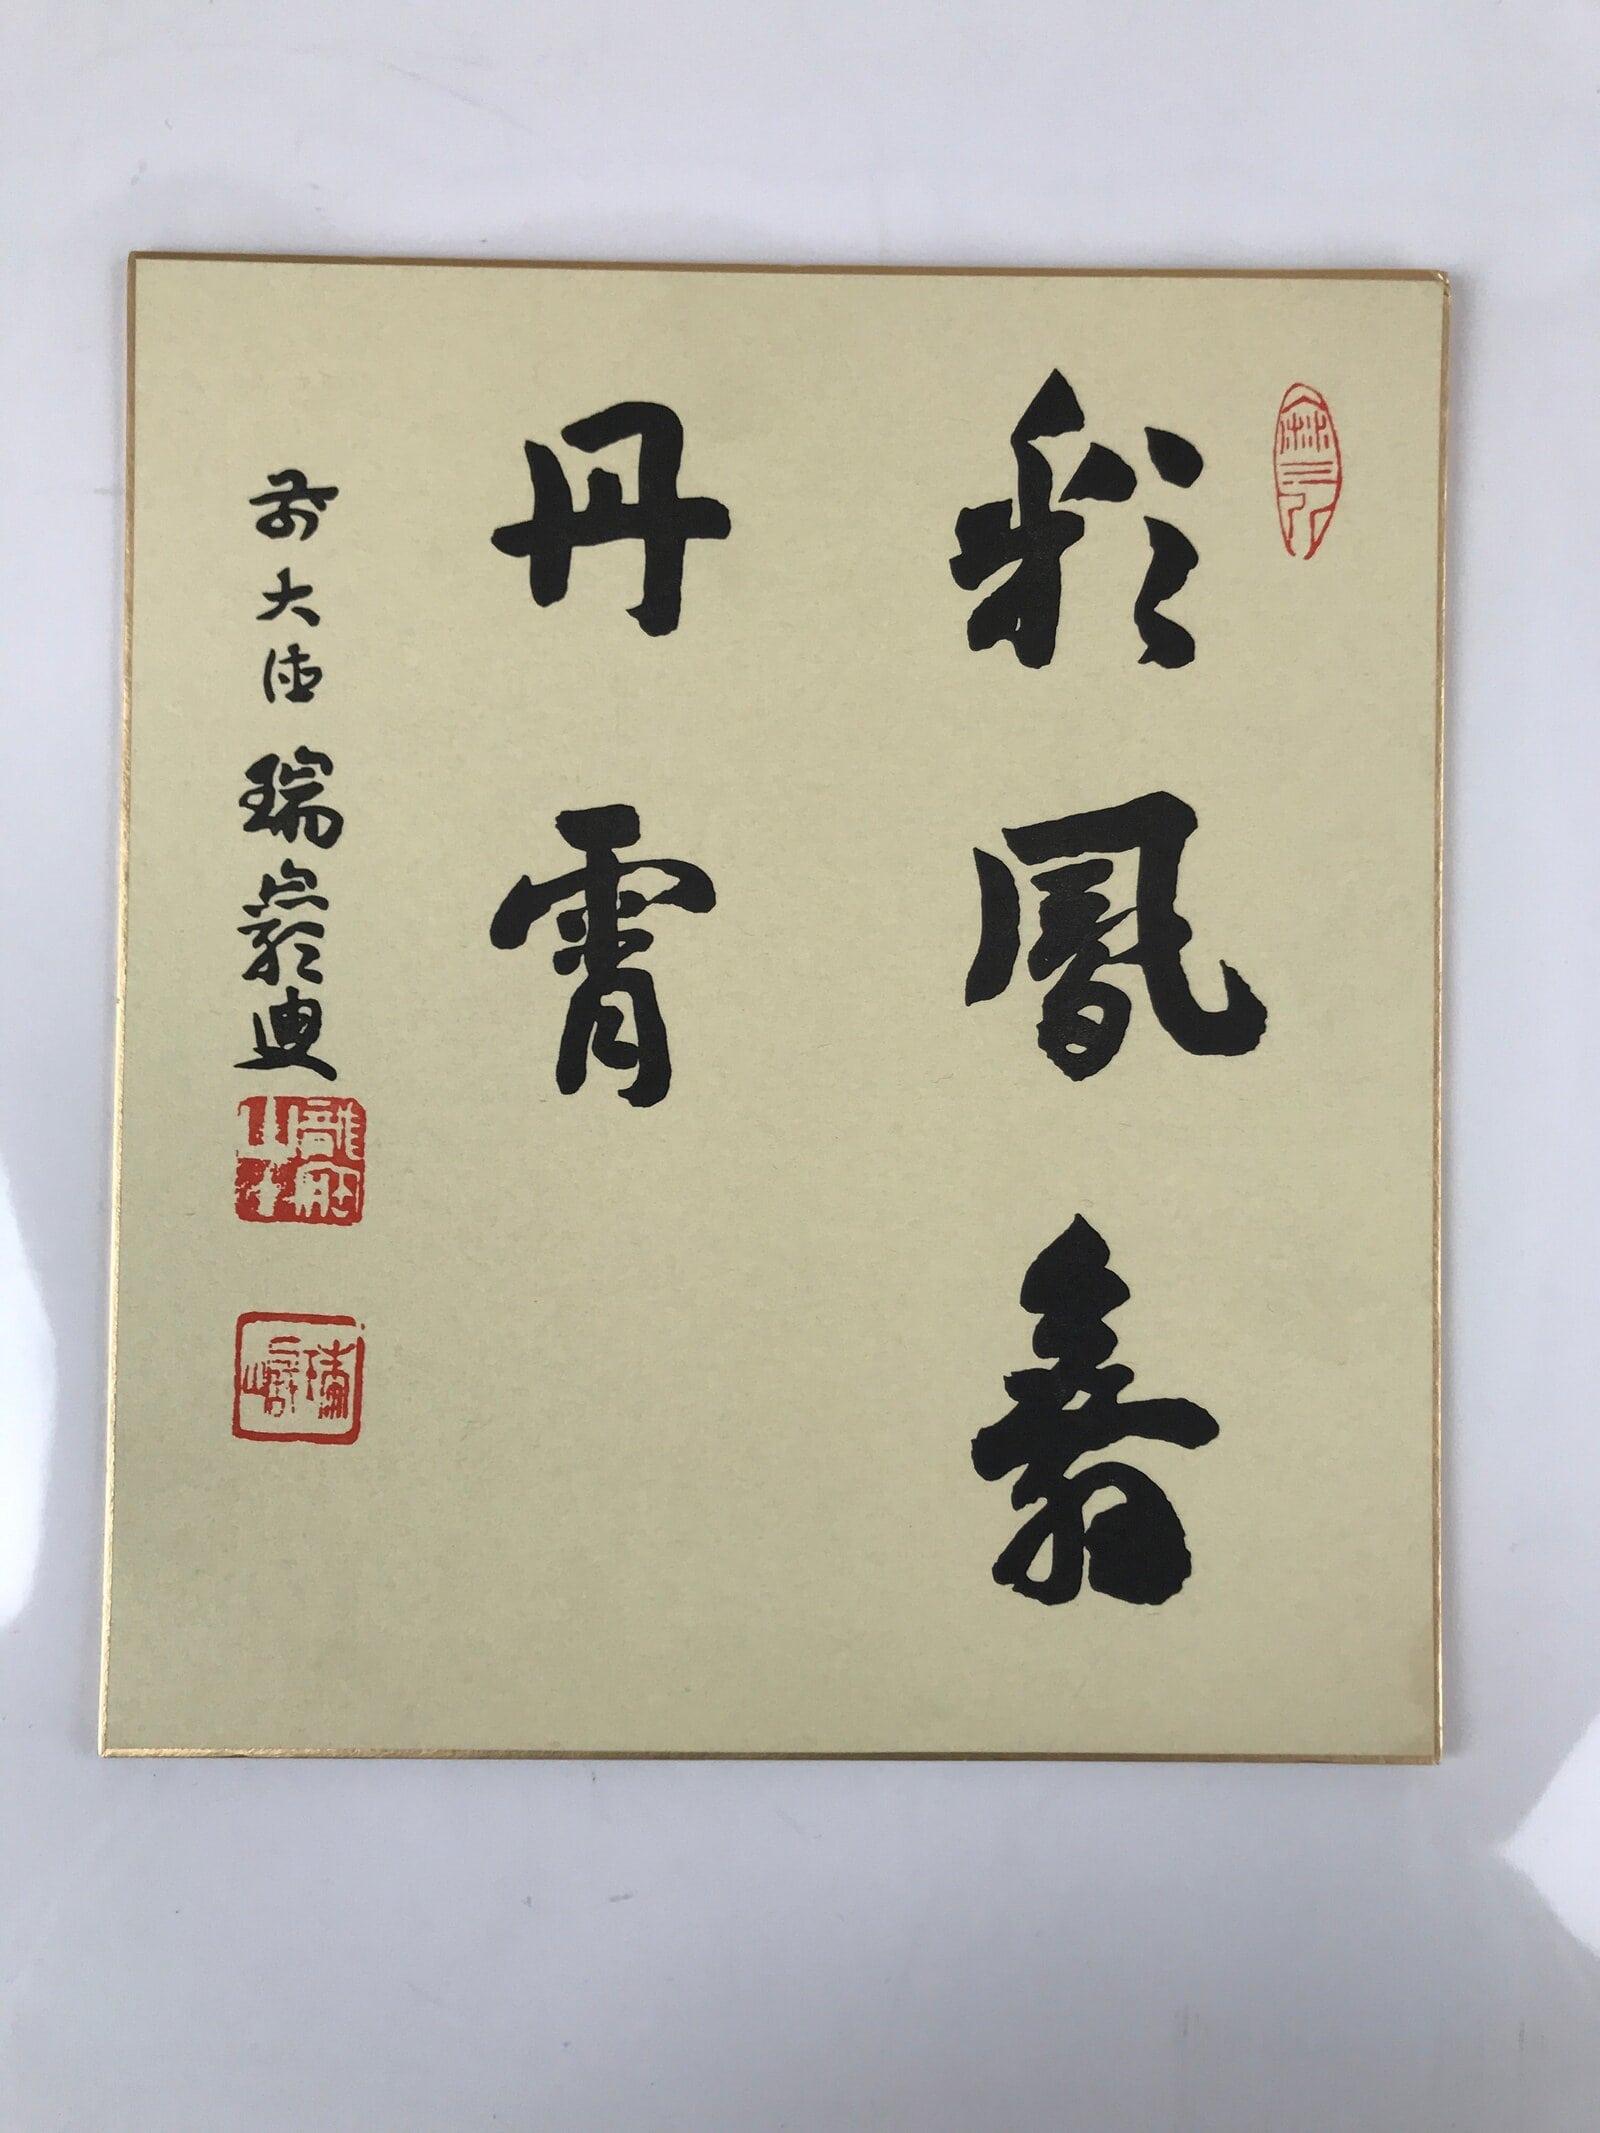 彩鳳舞
丹霄
前大徳 瑞巌迪